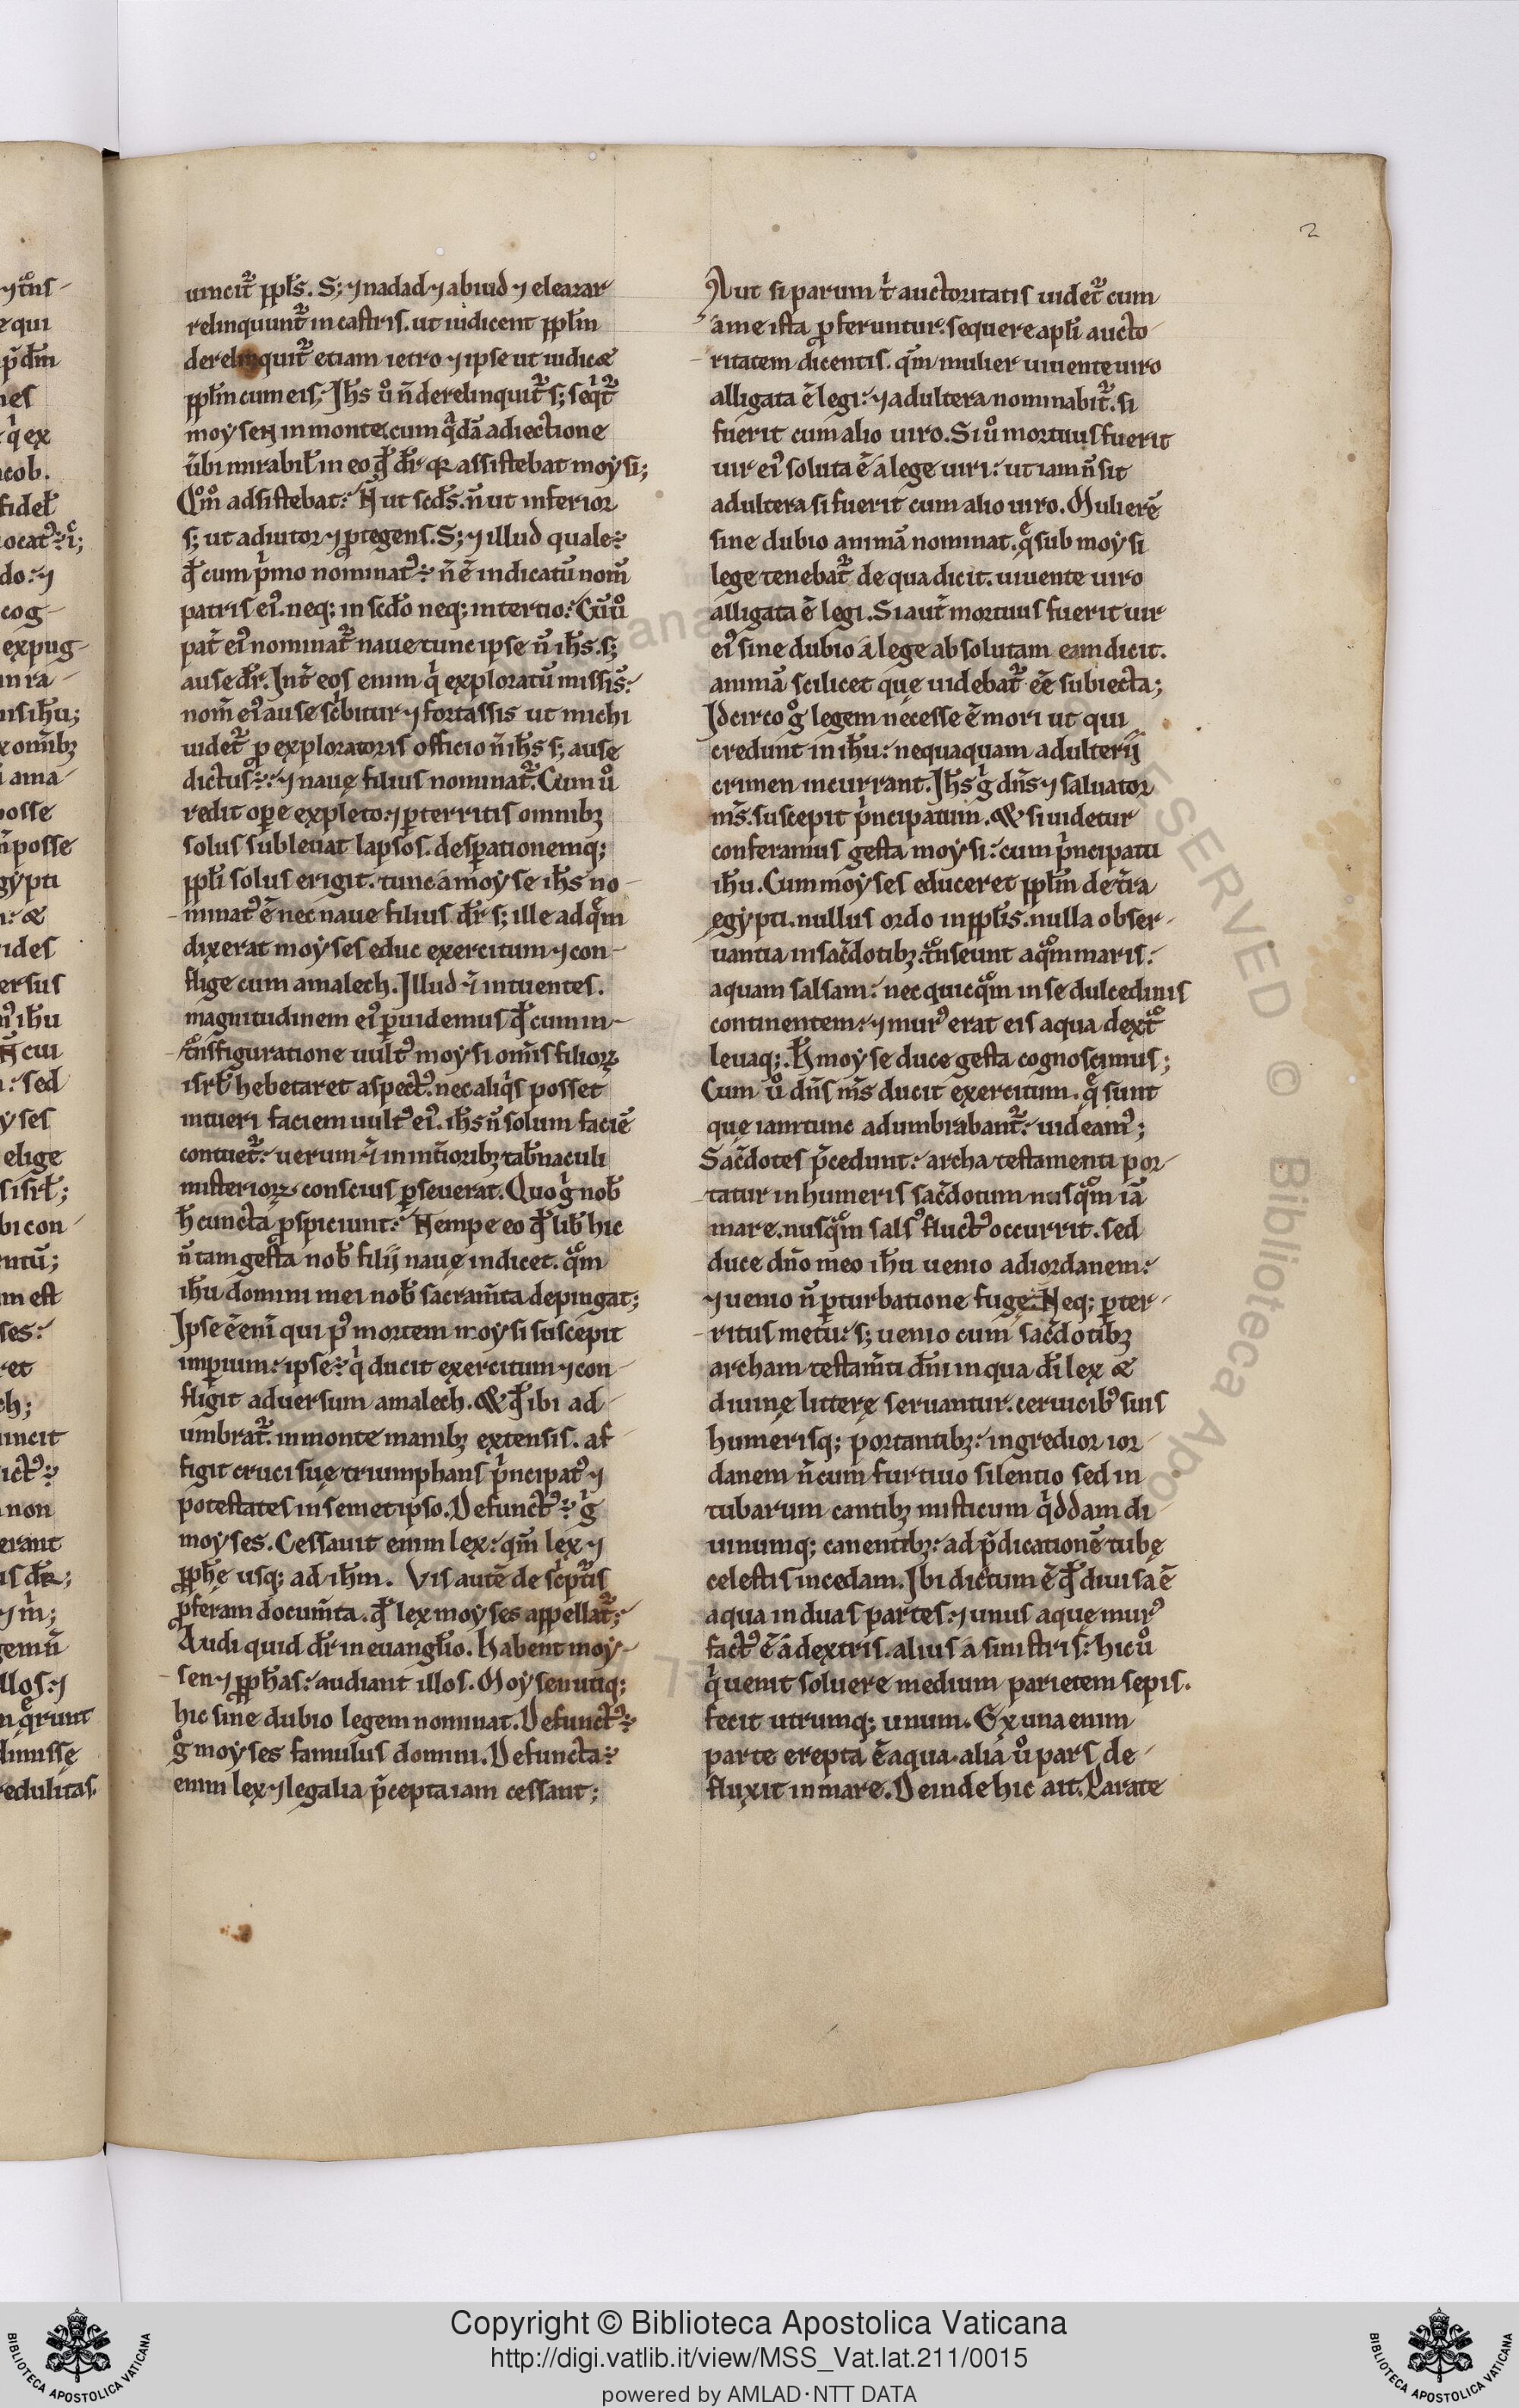 2
uincit᷑ ppłs. S; ⁊ nadad ⁊ abiud ⁊ eleazar
relinquunt᷑ in castris. ut iudicent ppłm
derelinquit᷑ etiam ietro ⁊ ipse ut iudicæ
ppłm cum eis; Ihs uͦ n̄ derelinquit᷑ s; seqͥt᷑
moysen in monte. cum qͣdā adiectione
ūbi mirabiłr in eo qđ dr̄ qr assistebat moysi;
Qͦm̊ adsistebat: N̄ ut scđs. n̄ ut inferior
s; ut adiutor ⁊ ꝓtegens. S; ⁊ illud quale÷
qđ cum pͥmo nominatꝰ÷ n̄ ē indicatū nom̄
patris eiꝰ. neq; in scđo neq; in tertio: Cū uͦ
pat̄ eiꝰ nominat᷑ naue tunc ipse n̄ ihs. s;
ause dr̄. Int̄ eos enim qͥ exploratū missi s̄:
nom̄ eiꝰ ause scͥbitur ⁊ fortassis ut michi
uidet᷑ ꝓ exploratoris officio n̄ ihs s; ause
dictus÷: ⁊ nauę filius nominat᷑. Cum uͦ
redit oꝑe expleto: ⁊ ꝑterritis omnibꝫ
solus subleuat lapsos. desꝑationemq;
ppłi solus erigit. tunc a moyse ihs no-
minatꝰ ē nec naue filius dr̄ s; ille ad quͤm
dixerat moyses educ exercitum ⁊ con-
flige cum amalech. Illud ⁊ͥ intuentes.
magnitudinem eiꝰ puidemus qđ cum in-
tͣnsfiguratione uultꝰ moysi om̄s filioꝝ
isrł hebetaret aspectꝰ. nec aliqͥs posset
intueri faciem uultꝰ eiꝰ. ihs n̄ solum faciē
contuet᷑: uerum ⁊ͥ in int̄ioribꝫ tab̄naculi
misterioꝝ conscius ꝑseuerat. Quo gͥ nob̄
h̄ cuncta ꝓspiciunt: Nempe eo qđ lib̄ hic
n̄ tam gesta nob̄ filij nauę indicet. qͣm
ihu domini mei nob̄ sacram̄ta depingat;
Ipse ē eni̅ qui pꝰ mortem moysi suscepit
imꝑium: ipse÷ qͥ ducit exercitum ⁊ con-
fligit aduersum amalech. & qđ ibi ad-
umbrat᷑. in monte manibꝫ extensis. af-
figit cruci suę triumphans pͥncipatꝰ ⁊
potestates in semetipso. Defunctꝰ÷ gͥ
moyses. Cessauit enim lex: qm̄ lex ⁊
ꝓphę usq; ad ihm. Vis autē de scͥpturis
ꝓferam docum̄ta. qđ lex moyses appellat᷑;
Audi quid dr̄ in euangłio. Habent moy-
sen ⁊ ꝓphas: audiant illos. Moysen utiq;
hic sine dubio legem nominat. Defunctꝰ÷
gͦ moyses famulus domini. Defuncta÷
enim lex ⁊ legalia p̄cepta iam cessant;
Aut si parum tͥ auctoritatis uidet᷑ cum
a me ista ꝓferuntur. sequere apłi aucto-
ritatem dicentis. qm̄ mulier uiuente uiro
alligata ē legi: ⁊ adultera nominabit᷑. si
fuerit cum alio uiro. Si uͦ mortuus fuerit
uir eiꝰ soluta ē a lege uiri: ut iam n̄ sit
adultera si fuerit cum alio uiro. Mulierē
sine dubio animā nominat. qͤ sub moysi
lege tenebat᷑ de qua dicit. uiuente uiro
alligata ē legi. Si aut̄ mortuus fuerit uir
eiꝰ sine dubio a lege absolutam eam dicit.
animā scilicet quę uidebat᷑ eē subiecta;
Idcirco gͦ legem necesse ē mori ut qui
credunt in ihu: nequaquam adulterij
crimen incurrant. Ihs gͥ dn̄s ⁊ saluator
nr̄s. suscepit pͥncipatum. & si uidetur
conferamus gesta moysi: cum pͥncipatu
ihu. Cum moyses educeret ppłm de t̄ra
ęgypti. nullus ordo in ppłis. nulla obser-
uantia in sac̄dotibꝫ. tͣnseunt aqͣm maris:
aquam salsam: nec quicqͣm in se dulcedinis
continentem: ⁊ murꝰ erat eis aqua dextͣ
leuaq;. H̄ moyse duce gesta cognoscimus;
Cum uͦ dn̄s nr̄s ducit exercitum. qͤ sunt
quę iam tunc adumbrabant᷑: uideamꝰ;
Sac̄dotes p̄cedunt: archa testamenti por-
tatur in humeris sac̄dotum nusqͣm iā
mare. nusqͣm salsꝰ fluctꝰ occurrit. sed
duce dn̄o meo ihu uenio ad iordanem:
⁊ uenio n̄ ꝑturbatione fugę. Neq; ꝑter-
ritus metu: s; uenio cum sac̄dotibꝫ
archam testam̄ti dn̄i in qua dī lex æ
diuinę litterę seruantur. ceruicibꝰ suis
humerisq; portantibꝫ: ingredior ior-
danem n̄ cum furtiuo silentio sed in
tubarum cantibꝫ misticum qͥddam di-
uinumq; canentibꝫ: ad p̄dicationē tubę
celestis incedam. Ibi dictum ē qđ diuisa ē
aqua in duas partes: ⁊ unus aquę murꝰ
factꝰ ē a dextris. alius a sinistris: hic uͦ
qͥ uenit soluere medium parietem sepis.
fecit utrumq; unum. Ex una enim
parte erepta ē aqua. alia uͦ pars de-
fluxit in mare. Deinde hic ait. Parate
Copyright © Biblioteca Apostolica Vaticana
http://digi.vatlib.it/view/MSS_Vat.lat.211/0015
powered by AMLAD·NTT DATA
BIBLIOTECA APOSTOLICA VATICANA
BIBLIOTECA APOSTOLICA VATICANA